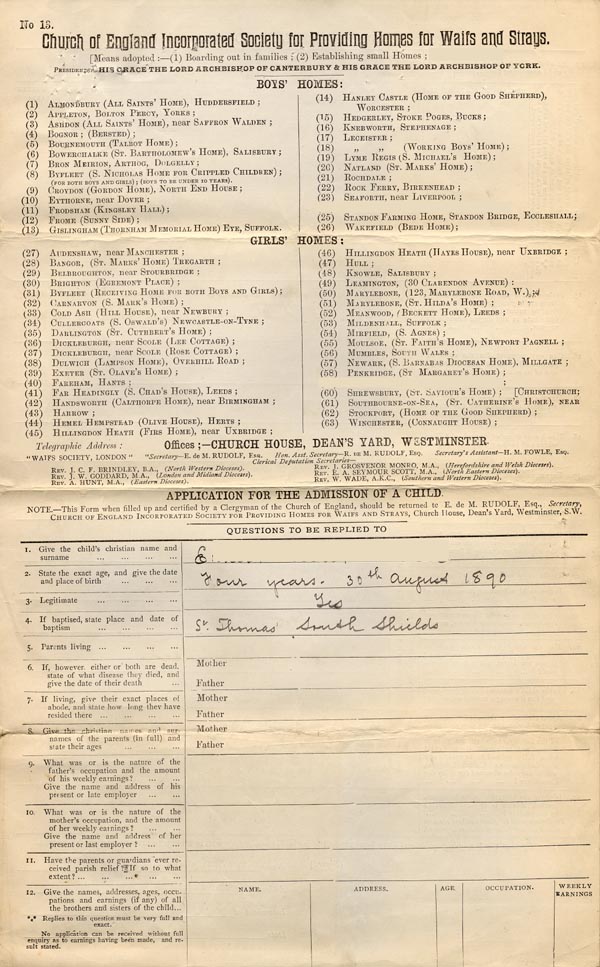 No 18.
Church of England Incorporated Society for Providing Homes for Waifs and Strays.
[Means adopted :—(1) Boarding out in families ; (2) Establishing small Homes ;
PRESIDENTS, HIS GRACE THE LORD ARCHBISHOP OF CANTERBURY & HIS GRACE THE LORD ARCHBISHOP OF YORK.
BOYS' HOMES:
(1) ALMONDBURY (ALL SAINTS' HOME), HUDDERSFIELD ;
(2) APPLETON, BOLTON PERCY, YORKS ;
(3) ASHDON (ALL SAINTS' HOME), near SAFFRON WALDEN ;
(4) BOGNOR ; (BERSTED) ;
(5) BOURNEMOUTH (TALBOT HOME) ;
(6) BOWERCHALKE (ST. BARTHOLOMEW'S HOME), SALISBURY ;
(7) BRON MEIRION, ARTHOG, DOLGELLY ;
(8) BYFLEET (S. NICHOLAS HOME FOR CRIPPLED CHILDREN) ;
(FOR BOTH BOYS AND GIRLS) ; (BOYS TO BE UNDER 10 YEARS).
(9) CROYDON (GORDON HOME), NORTH END HOUSE ;
(10) EYTHORNE, near DOVER ;
(11) FRODSHAM (KINGSLEY HALL) ;
(12) FROME (SUNNY SIDE) ;
(13) GISLINGHAM (THORNHAM MEMORIAL HOME) EYE, SUFFOLK.
(14) HANLEY CASTLE (HOME OF THE GOOD SHEPHERD),
WORCESTER ;
(15) HEDGERLEY, STOKE POGES, BUCKS ;
(16) KNEBWORTH, STEPHENAGE ;
(17) LEICESTER ;
(18) „ „ (WORKING BOYS' HOME) ;
(19) LYME REGIS (S. MICHAEL'S HOME) ;
(20) NATLAND (ST. MARKS' HOME) ;
(21) ROCHDALE ;
(22) ROCK FERRY, BIRKENHEAD ;
(23) SEAFORTH, near LIVERPOOL ;
(25) STANDON FARMING HOME, STANDON BRIDGE, ECCLESHALL;
(26) WAKEFIELD (BEDE HOME) ;
GIRLS' HOMES:
(27) AUDENSHAW, near MANCHESTER ;
(28) BANGOR, (ST. MARKS' HOME) TREGARTH ;
(29) BELBROUGHTON, near STOURBRIDGE ;
(30) BRIGHTON (EGREMONT PLACE) ;
(31) BYFLEET (RECEIVING HOME FOR BOTH BOYS AND GIRLS) ;
(32) CARNARVON (S. MARK'S HOME) ;
(33) COLD ASH (HILL HOUSE), near NEWBURY ;
(34) CULLERCOATS (S. OSWALD'S) NEWCASTLE-ON-TYNE ;
(35) DARLINGTON (ST. CUTHBERT'S HOME) ;
(36) DICKLEBURGH, near SCOLE (LEE COTTAGE) ;
(37) DICKLEBURGH, near SCOLE (ROSE COTTAGE) ;
(38) DULWICH (LAMPSON HOME), OVERHILL ROAD ;
(39) EXETER (ST. OLAVE'S HOME) ;
(40) FAREHAM, HANTS ;
(41) FAR HEADINGLY (S. CHAD'S HOUSE), LEEDS ;
(42) HANDSWORTH (CALTHORPE HOME), near BIRMINGHAM ;
(43) HARROW ;
(44) HEMEL HEMPSTEAD (OLIVE HOUSE), HERTS ;
(45) HILLINGDON HEATH (FIRS HOME), near UXBRIDGE ;
(46) HILLINGDON HEATH (HAYES HOUSE), near UXBRIDGE ;
(47) HULL ;
(48) KNOWLE, SALISBURY ;
(49) LEAMINGTON, (30 CLARENDON AVENUE) ;
(50) MARYLEBONE, (123, MARYLEBONE ROAD, W.),
(51) MARYLEBONE, (ST. HILDA'S HOME) ;
(52) MEANWOOD, (BECKETT HOME), LEEDS ;
(53) MILDENHALL, SUFFOLK ;
(54) MIRFIELD, (S. AGNES) ;
(55) MOULSOE, (ST. FAITH'S HOME), NEWPORT PAGNELL ;
(56) MUMBLES, SOUTH WALES ;
(57) NEWARK, (S. BARNABAS DIOCESAN HOME), MILLGATE ;
(58) PENKRIDGE, (ST MARGARET'S HOME) ;
;
(60) SHREWSBURY, (ST. SAVIOUR'S HOME) ; [CHRISTCHURCH;
(61) SOUTHBOURNE-ON-SEA, (ST. CATHERINE'S HOME), NEAR
(62) STOCKPORT, (HOME OF THE GOOD SHEPHERD) ;
(63) WINCHESTER, (CONNAUGHT HOUSE) ;
Telegraphic Address : Offices ;—CHURCH HOUSE, DEAN'S YARD, WESTMINSTER.
"WAIFS SOCIETY, LONDON" Secretary—E. DE M. RUDOLF, ESQ. Hon. Asst. Secretary—R. DE M. RUDOLF, ESQ. Secretary's Assistant—H. M. FOWLE, ESQ.
Clerical Deputation Secretaries—
REV. J. C. F. BRINDLEY, B.A., (North Western Dioceses).
REV. J. W. GODDARD, M.A., (London and Midland Dioceses).
REV. A. HUNT, M.A., (Eastern Dioceses).
REV. J. GROSVENOR MONRO, M.A., (Herefordshire and Welsh Dioceses).
REV. E. A. SEYMOUR SCOTT, M.A., (North Eastern Dioceses).
REV. W. WADE, A.K.C., (Southern and Western Dioceses).
APPLICATION FOR THE ADMISSION OF A CHILD.
NOTE.—This Form when filled up and certified by a Clergyman of the Church of England, should be returned to E. de M. RUDOLF, Esq., Secretary,
CHURCH OF ENGLAND INCORPORATED SOCIETY FOR PROVIDING HOMES FOR WAIFS AND STRAYS, Church House, Dean's Yard, Westminster, S.W.
QUESTIONS TO BE REPLIED TO
1. Give the child's christian name and
surname ... ... ... ...
E
2. State the exact age, and give the date
and place of birth ... ... ...
Four years. 30th August 1890
3. Legitimate ... ... ... ...
Yes
4. If baptised, state place and date of
baptism ... ... ... ...
St. Thomas' South Shields
5. Parents living ... ... ... ...
6. If, however, either or both are dead,
state of what disease they died, and
give the date of their death ...
Mother
Father
7. If living, give their exact places of
abode, and state how long they have
resided there ... ... ... ...
Mother
Father
8. Give the christian names and sur-
names of the parents (in full) and
state their ages ... ... ...
Mother
Father
9. What was or is the nature of the
father's occupation and the amount
of his weekly earnings ? ... ...
Give the name and address of his
present or late employer ... ...
10. What was or is the nature of the
mother's occupation, and the amount
of her weekly earnings ? ... ...
Give the name and address of her
present or last employer ? ... ...
11. Have the parents or guardians ever re-
ceived parish relief ? If so to what
extent ? ... ... ...* ... ...
12. Give the names, addresses, ages, occu-
pations and earnings (if any) of all
the brothers and sisters of the child...
*** Replies to this question must be very full and
exact.
No application can be received without full
enquiry as to earnings having been made, and re-
sult stated.
NAME. ADDRESS. AGE OCCUPATION. WEEKLY EARNINGS